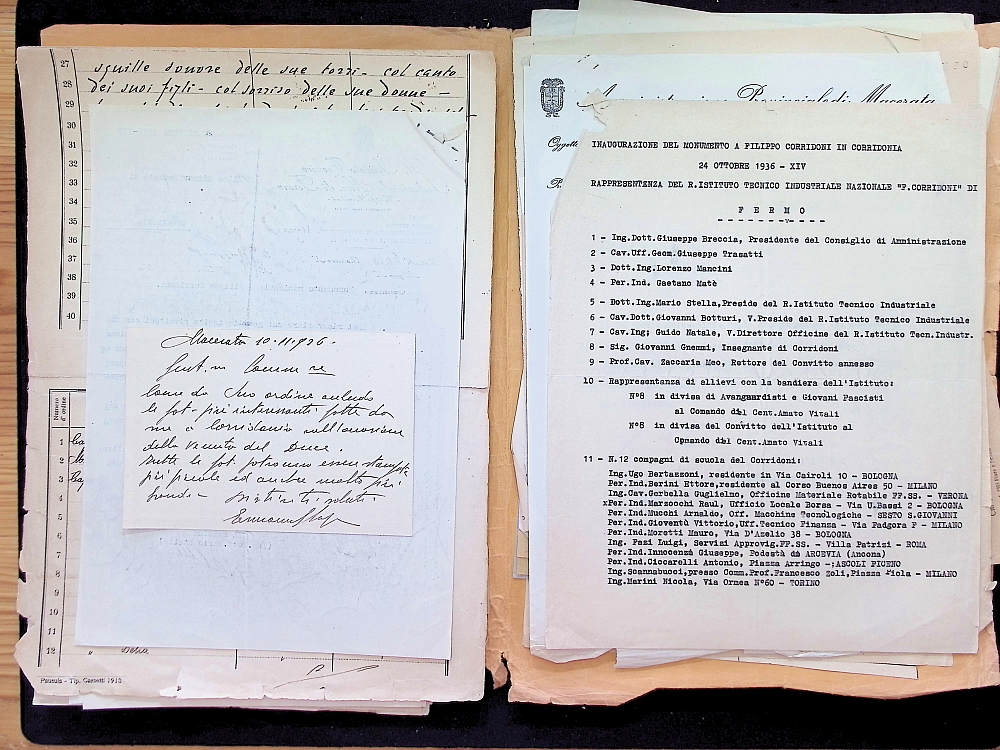 27
squille d'onore delle sue torri - col canto
28
dei suoi figli - col sorriso delle sue donne -
29
30
31
32
33
34
35
36
37
38
39
40
Macerata 10-11-936 -
Gent.m Comm re
Come da Suo ordine
le fot. più interessanti fatte da
me a Corridonia nell'occasione
della venuta del Duce.
Tutte le fot. potranno essere
più piccole ed anche molto più
grandi - Distinti saluti
Numero d'ordine
1
2
3
4
5
6
7
8
9
10
11
12
Pausula - Tip. 1912
Amministrazione Provinciale di Macerata
Oggetto
INAUGURAZIONE DEL MONUMENTO A FILIPPO CORRIDONI IN CORRIDONIA
24 OTTOBRE 1936 - XIV
RAPPRESENTENZA DEL R.ISTITUTO TECNICO INDUSTRIALE NAZIONALE "F.CORRIDONI" DI
F E R M O
1 - Ing.Dott.Giuseppe Breccia, Presidente del Consiglio di Amministrazione
2 - Cav.Uff.Geom.Giuseppe Trasatti
3 - Dott.Ing.Lorenzo Mancini
4 - Per.Ind. Gaetano Matè
5 - Dott.Ing.Mario Stella,Preside del R.Istituto Tecnico Industriale
6 - Cav.Dott.Giovanni Botturi, V.Preside del R.Istituto Tecnico Industriale
7 - Cav.Ing; Guido Natale, V.Direttore Officine del R.Istituto Tecn.Industr.
8 - Sig. Giovanni Gnemmi, Insegnante di Corridoni
9 - Prof.Cav. Zaccaria Meo, Rettore del Convitto annesso
10 - Rappresentanza di allievi con la bandiera dell'Istituto:
N°8 in divisa di Avanguardisti e Giovani Fascisti
al Comando del Cent.Amato Vitali
N°8 in divisa del Convitto dell'Istituto al
Comando del Cent.Amato Vitali
11 - N.12 compagni di scuola del Corridoni:
Ing.Ugo Bertazzoni, residente in Via Cairoli 10 - BOLOGNA
Per.Ind.Berini Ettore,residente al Corso Buenos Aires 50 - MILANO
Ing.Cav.Gerbella Guglielmo, Officine Materiale Rotabile FF.SS. - VERONA
xPer.Ind.Marzocchi Raul, Ufficio Locale Borsa - Via U.Bassi 2 - BOLOGNA
Per.Ind.Mucchi Arnaldo, Off. Macchine Tecnologiche - SESTO S.GIOVANNI
Per.Ind.Gioventù Vittorio,Uff.Tecnico Finanza - Via Fadgora F - MILANO
Per.Ind.Moretti Mauro, Via D'Azelio 38 - BOLOGNA
Ing. Fazi Luigi, Servizi Approvig.FF.SS. - Villa Patrizi - ROMA
Per.Ind.Innocenzi Giuseppe, Podestà di ARCEVIA (Ancona)
Per.Ind.Ciccarelli Antonio, Piazza Arringo -:ASCOLI PICENO
Ing.Scannabucci,presso Comm.Prof.Francesco Zoli,Piazza Fiola - MILANO
Ing.Marini Nicola, Via Ormea N°60 - TORINO